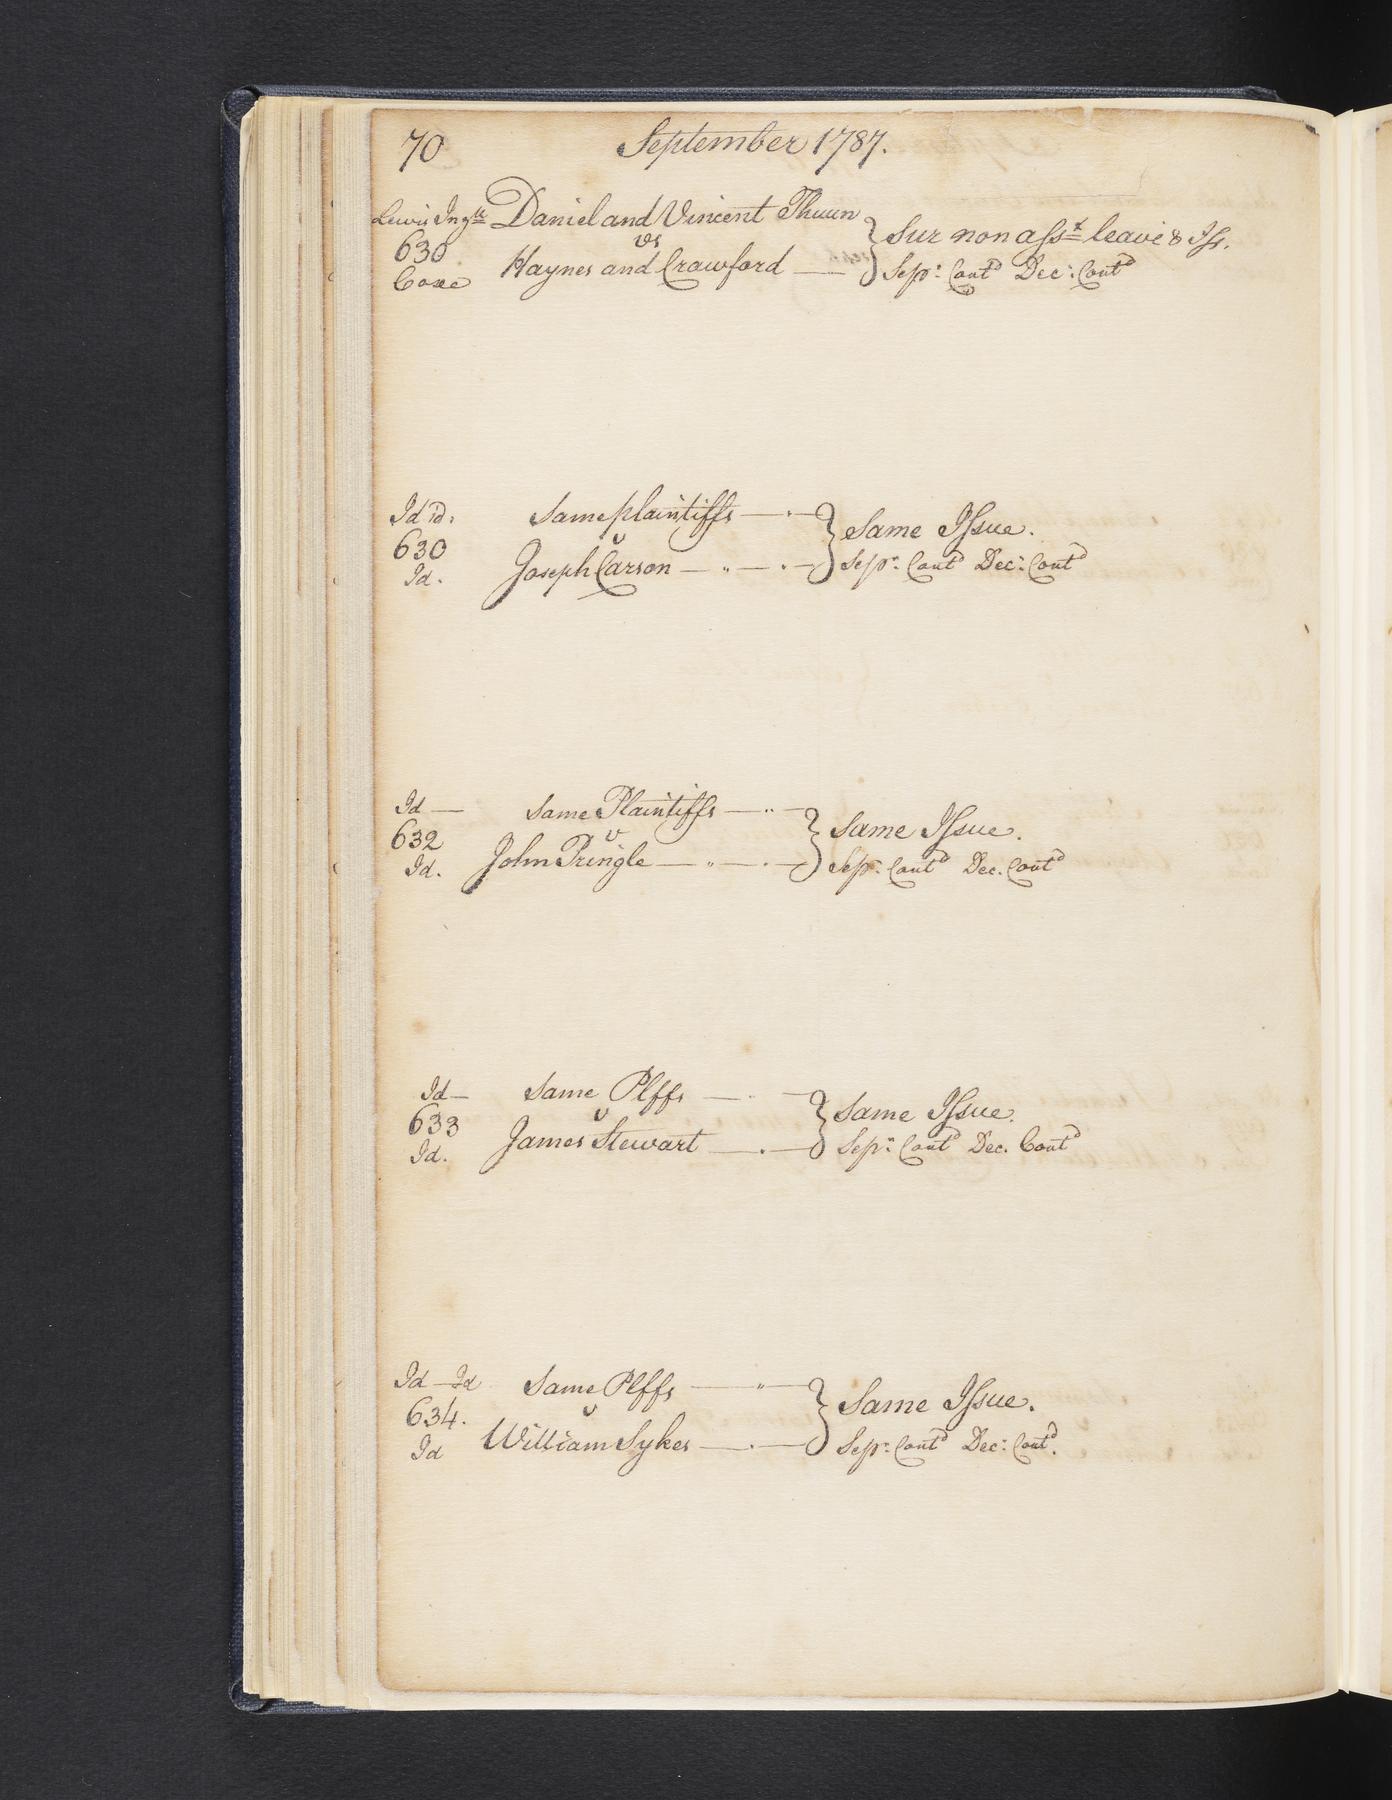 70 September 1787.
Lewis Ingll Daniel and Vincent Thuun
vs
630
Coxe Haynes and Crawford
Sur non asst leave & Iss.
Sepr: Contd Decr: Contd
Id id. Same plaintiffs
v
630
Id. Joseph Carson
Same Issue.
Sepr: Contd Decr: Contd
Id Same Plaintiffs
v
632
Id. John Pringle
Same Issue.
Sepr: Contd Dec. Contd
Id Same Plffs
v
633
Id. James Stewart
Same Issue.
Sepr: Contd Dec. Contd
Id Id Same Plffs
v
634.
Id William Sykes
Same Issue.
Sepr: Contd Decr: Contd.